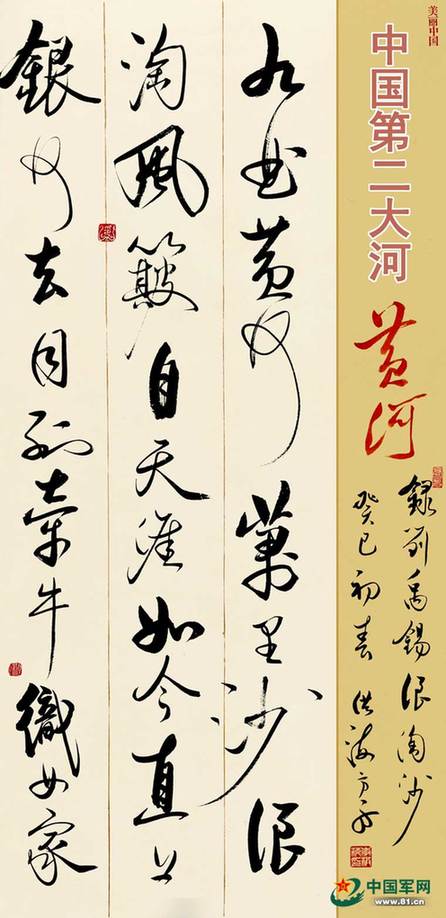 美丽中国
中国第二大河
黄河
録刘禹錫浪淘沙
癸巳初春
九曲黄河萬里沙浪
淘風簸自天涯如今直上
銀河去同到牽牛織女家
中国军网
www.81.cn